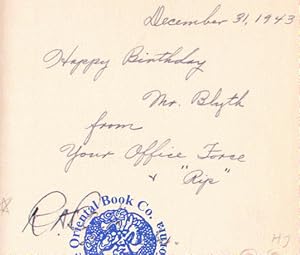 December 31, 1943
Happy Birthday
Mr. Blyth
from
Your Office Force
& "Rip"
Oriental Book Co.